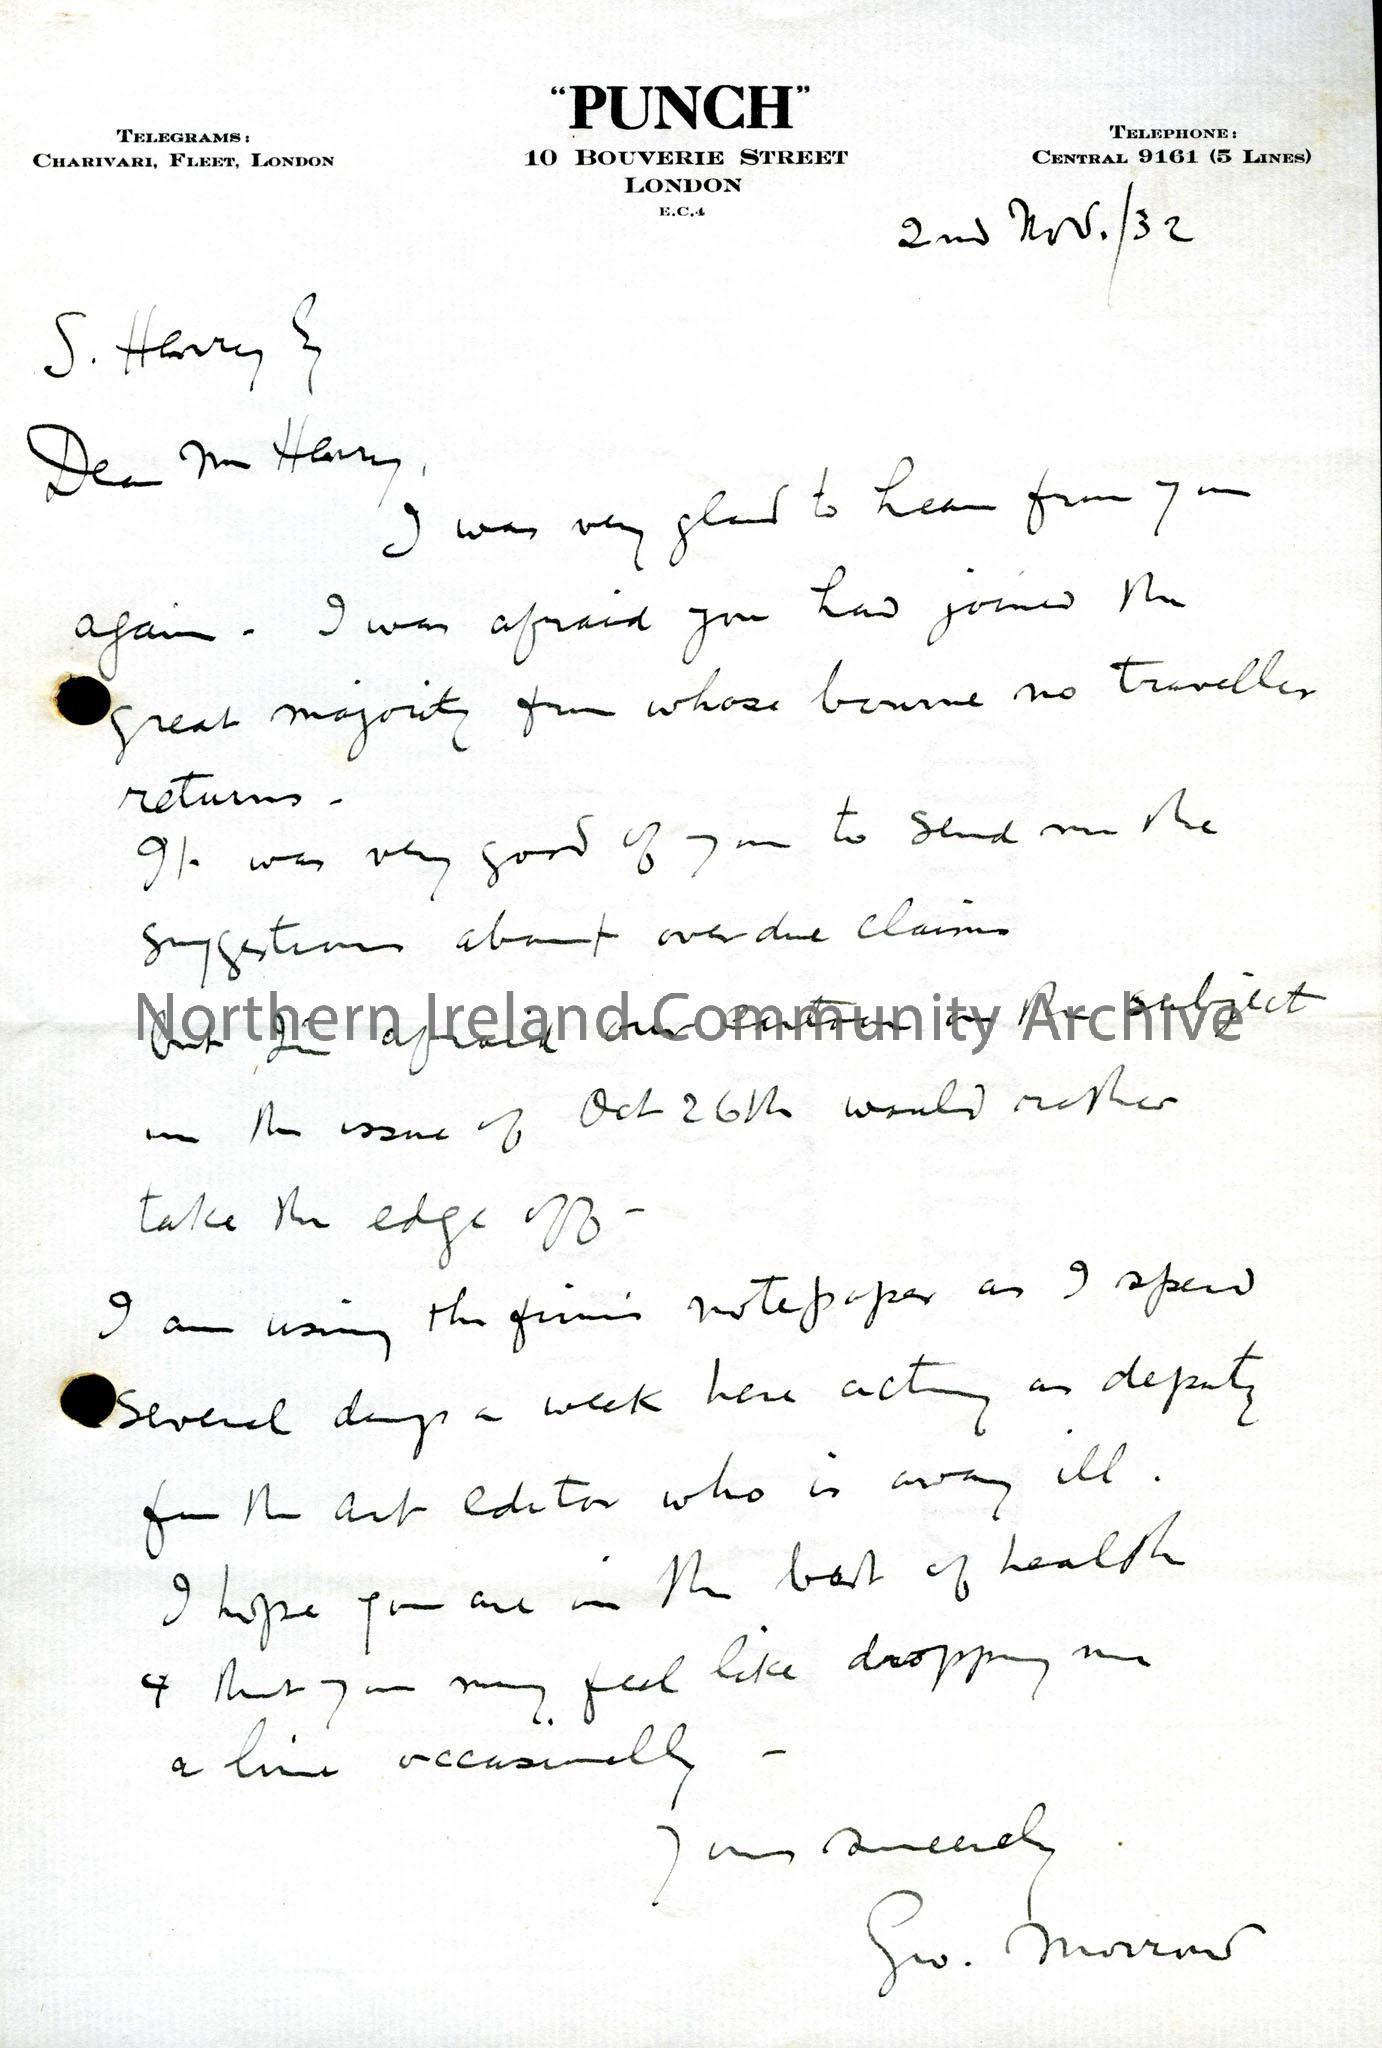 "PUNCH"
10 BOUVERIE STREET
LONDON
E.C.4
TELEGRAMS:
CHARIVARI, FLEET, LONDON
TELEPHONE:
CENTRAL 9161 (5 LINES)
2nd Nov./32
S. Henry Esq
Dear Mr Henry,
I was very glad to hear from you
again - I was afraid you had joined the
great majority from whose bourne no traveller
returns -
It was very good of you to send me the
suggestions about overdue claims
but I'm afraid our cartoon on the subject
in the issue of Oct 26th would rather
take the edge off -
I am using the firm's notepaper as I spend
several days a week here acting as deputy
for the art editor who is away ill.
I hope you are in the best of health
& that you may feel like dropping me
a line occasionally -
Yours sincerely
Geo. Morrow
Northern Ireland Community Archive